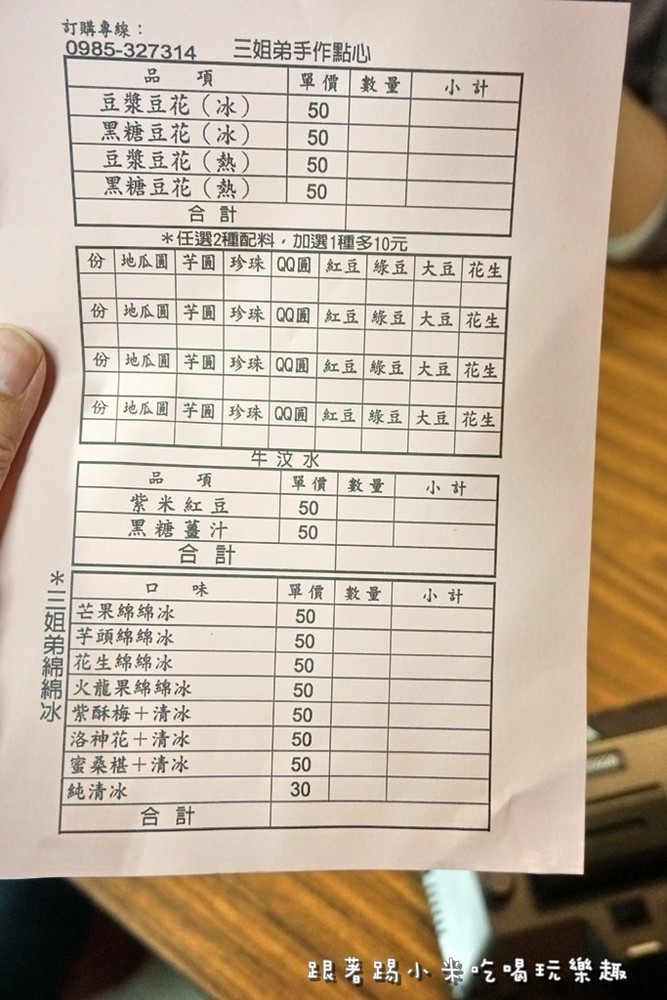 訂購專線：
0985-327314 三姐弟手作點心
品項 單價 數量 小計
豆漿豆花（冰） 50
黑糖豆花（冰） 50
豆漿豆花（熱） 50
黑糖豆花（熱） 50
合計
＊任選2種配料，加選1種多10元
份 地瓜圓 芋圓 珍珠 QQ圓 紅豆 綠豆 大豆 花生
份 地瓜圓 芋圓 珍珠 QQ圓 紅豆 綠豆 大豆 花生
份 地瓜圓 芋圓 珍珠 QQ圓 紅豆 綠豆 大豆 花生
份 地瓜圓 芋圓 珍珠 QQ圓 紅豆 綠豆 大豆 花生
牛汶水
品項 單價 數量 小計
紫米紅豆 50
黑糖薑汁 50
合計
＊三姐弟綿綿冰
口味 單價 數量 小計
芒果綿綿冰 50
芋頭綿綿冰 50
花生綿綿冰 50
火龍果綿綿冰 50
紫酥梅＋清冰 50
洛神花＋清冰 50
蜜桑椹＋清冰 50
純清冰 30
合計
跟著踢小米吃喝玩樂趣